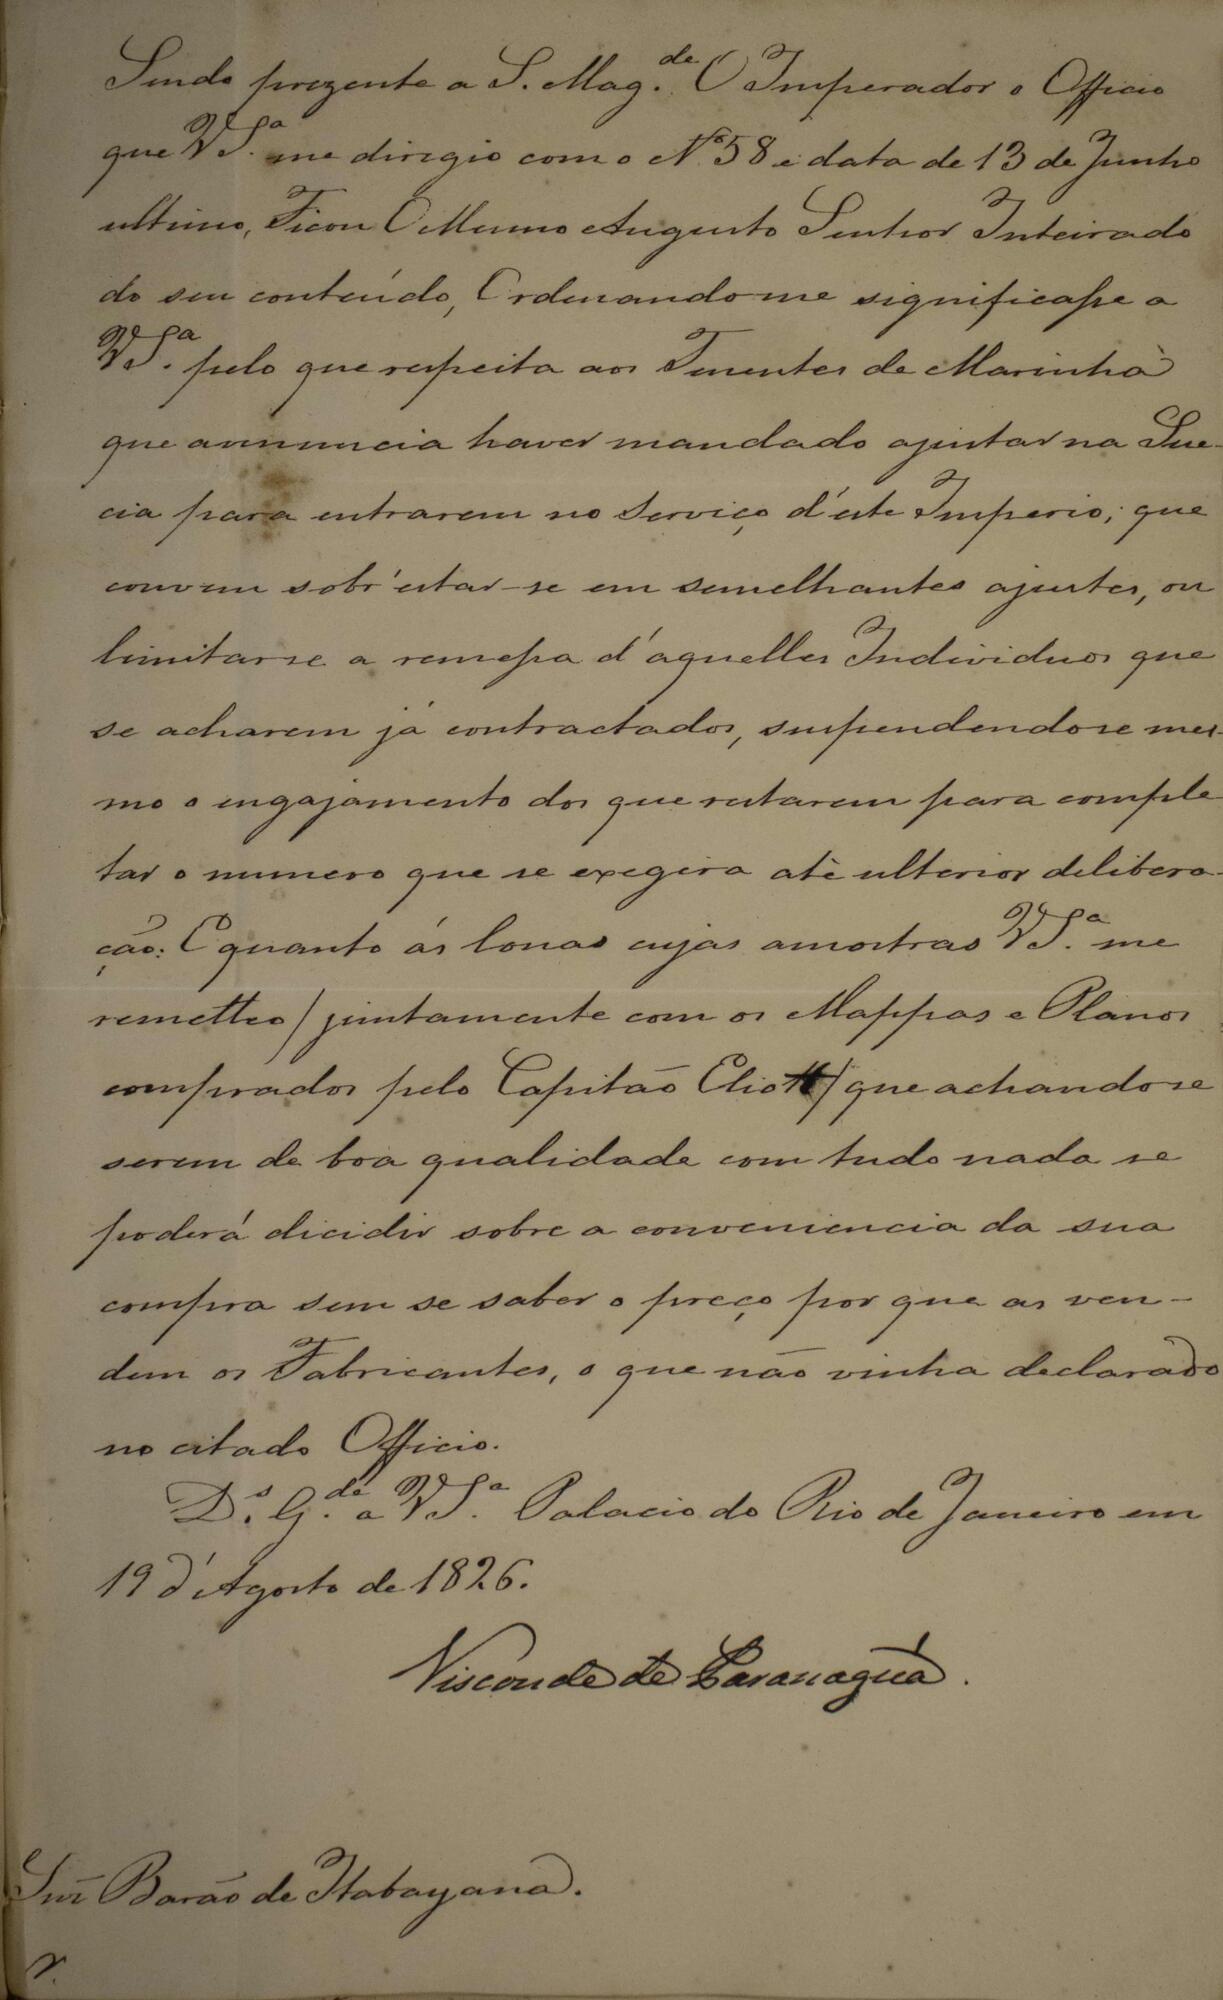 Sendo prezente a S. Mag.de O Imperador o Officio
que V S.a me dirigio com o N.o 58 e data de 13 de Junho
ultimo, Ficou O Mesmo Augusto Senhor Inteirado
do seu conteúdo, Ordenandome significasse a
V S.a pelo que respeita aos Tenentes de Marinha
que annuncia haver mandado ajustar na Sue-
cia para entrarem no Serviço d'este Imperio; que
convem sobr'estar-se em semelhantes ajustes, ou
limitarse a remessa d'aquelles Individuos que
se acharem já contractados, suspendendose mes-
mo o engajamento dos que restarem para comple
tar o numero que se exegira até ulterior delibera-
ção: E quanto ás lonas cujas amostras V S.a me
remetteo / juntamente com os Mappas e Planos
comprados pelo Capitão Eliott / que achandose
serem de boa qualidade com tudo nada se
poderá dicidir sobre a conveniencia da sua
compra sem se saber o preço por que as ven-
dem os Fabricantes, o que não vinha declarado
no citado Officio.
D.s G.de a V S.a Palacio do Rio de Janeiro em
19 d'Agosto de 1826.
Visconde de Paranaguá.
Snr Barão de Itabayana.